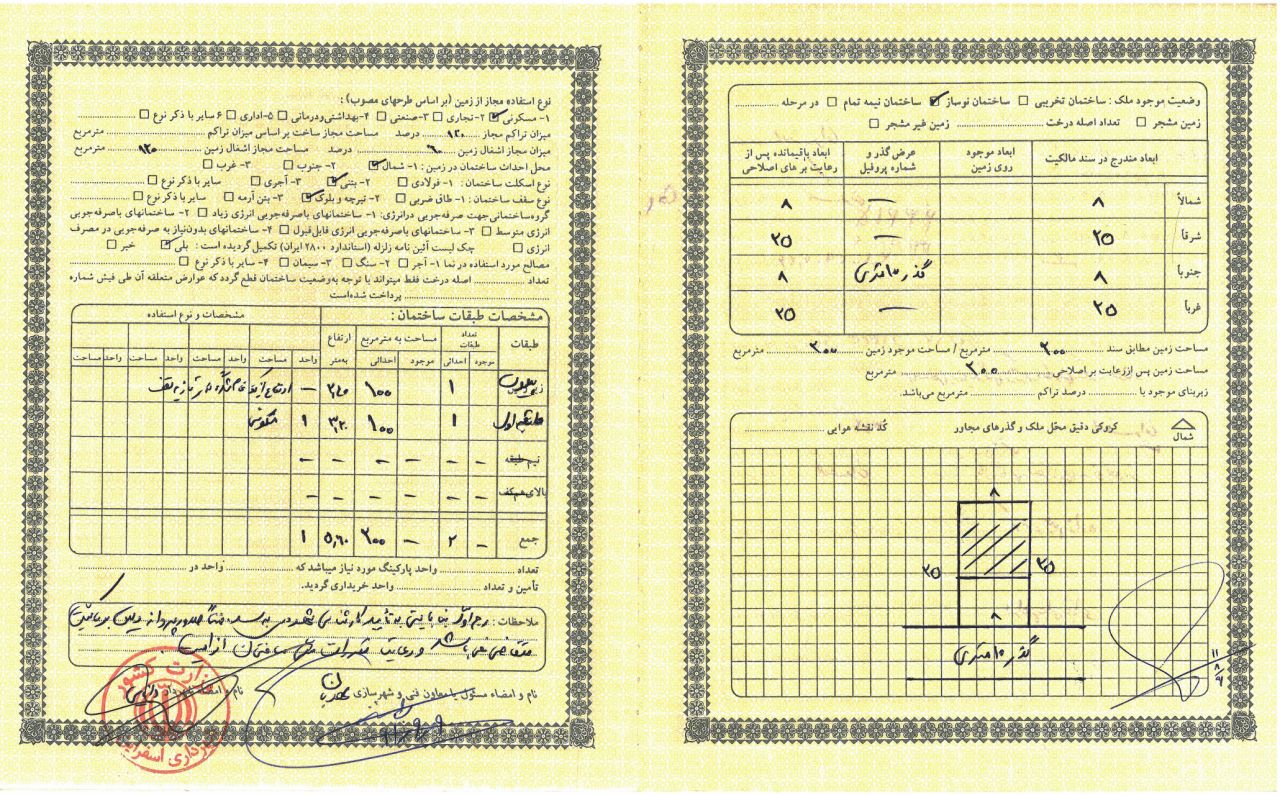 وضعیت موجود ملک : ساختمان تخریبی □ ساختمان نوساز ☑ ساختمان نیمه تمام □ در مرحله ..........
زمین مشجر □ تعداد اصله درخت .......... زمین غیر مشجر □
ابعاد مندرج در سند مالکیت | ابعاد موجود روی زمین | عرض گذر و شماره پروفیل | ابعاد باقیمانده پس از رعایت بر های اصلاحی
شمالاً | ۸ | | — | ۸
شرقاً | ۲۵ | | — | ۲۵
جنوبا | ۸ | | گذر ۱۰ متری | ۸
غربا | ۲۵ | | — | ۲۵
مساحت زمین مطابق سند ۲۰۰ مترمربع / مساحت موجود زمین ۲۰۰ مترمربع
مساحت زمین پس از رعایت بر اصلاحی ۲۰۰ مترمربع
زیربنای موجود با .......... درصد تراکم .......... مترمربع می‌باشد.
شمال
کروکی دقیق محل ملک و گذرهای مجاور
کد نقشه هوایی ..........
۸
۲۵ ۲۵
۸
گذر ۱۰ متری
نوع استفاده مجاز از زمین (بر اساس طرحهای مصوب) :
۱- مسکونی ☑ ۲- تجاری □ ۳- صنعتی □ ۴- بهداشتی‌ودرمانی □ ۵- اداری □ ۶ سایر با ذکر نوع □ ..........
میزان تراکم مجاز ۱۲۰ درصد مساحت مجاز ساخت بر اساس میزان تراکم .......... مترمربع
میزان مجاز اشغال زمین ۶۰ درصد مساحت مجاز اشغال زمین ۱۲۰ مترمربع
محل احداث ساختمان در زمین : ۱- شمال ☑ ۲- جنوب □ ۳- غرب □
نوع اسکلت ساختمان : ۱- فولادی □ ۲- بتنی ☑ ۳- آجری □ سایر با ذکر نوع □ ..........
نوع سقف ساختمان : ۱- طاق ضربی □ ۲- تیرچه و بلوک ☑ ۳- بتن آرمه □ سایر با ذکر نوع □ ..........
گروه ساختمانی جهت صرفه‌جویی در انرژی: ۱- ساختمانهای باصرفه‌جویی انرژی زیاد □ ۲- ساختمانهای باصرفه‌جویی
انرژی متوسط □ ۳- ساختمانهای باصرفه‌جویی انرژی قابل‌قبول □ ۴- ساختمانهای بدون‌نیاز به صرفه‌جویی در مصرف
انرژی □ چک لیست آئین نامه زلزله (استاندارد ۲۸۰۰ ایران) تکمیل گردیده است : بلی ☑ خیر □
مصالح مورد استفاده در نما ۱- آجر □ ۲- سنگ □ ۳- سیمان □ ۴- سایر با ذکر نوع □ ..........
تعداد .......... اصله درخت فقط میتواند با توجه به‌وضعیت ساختمان قطع گردد که عوارض متعلقه آن طی فیش شماره
.......... پرداخت شده‌است
مشخصات طبقات ساختمان : | مشخصات و نوع استفاده
طبقات | تعداد طبقات | مساحت به مترمربع | ارتفاع به‌متر
موجود | احداثی | موجود | احداثی | واحد | مساحت | واحد | مساحت | واحد | مساحت | واحد | مساحت
پیلوت | ۱ | ۱۰۰ | ۲/۴۰ | —
طبقه اول | ۱ | ۱۰۰ | ۳/۲۰ | ۱ | مسکونی
نیم طبقه | – | – | – | – | – | –
بالای همکف | – | –
جمع | – | ۲ | – | ۲۰۰ | ۵/۶۰ | ۱
تعداد .......... واحد پارکینگ مورد نیاز میباشد که .......... واحد در ..........
تأمین و تعداد .......... واحد خریداری گردید.
ملاحظات :
نام و امضاء مسئول یا معاون فنی و شهرسازی
نام و امضاء
وزارت کشور
شهرداری اسفراین